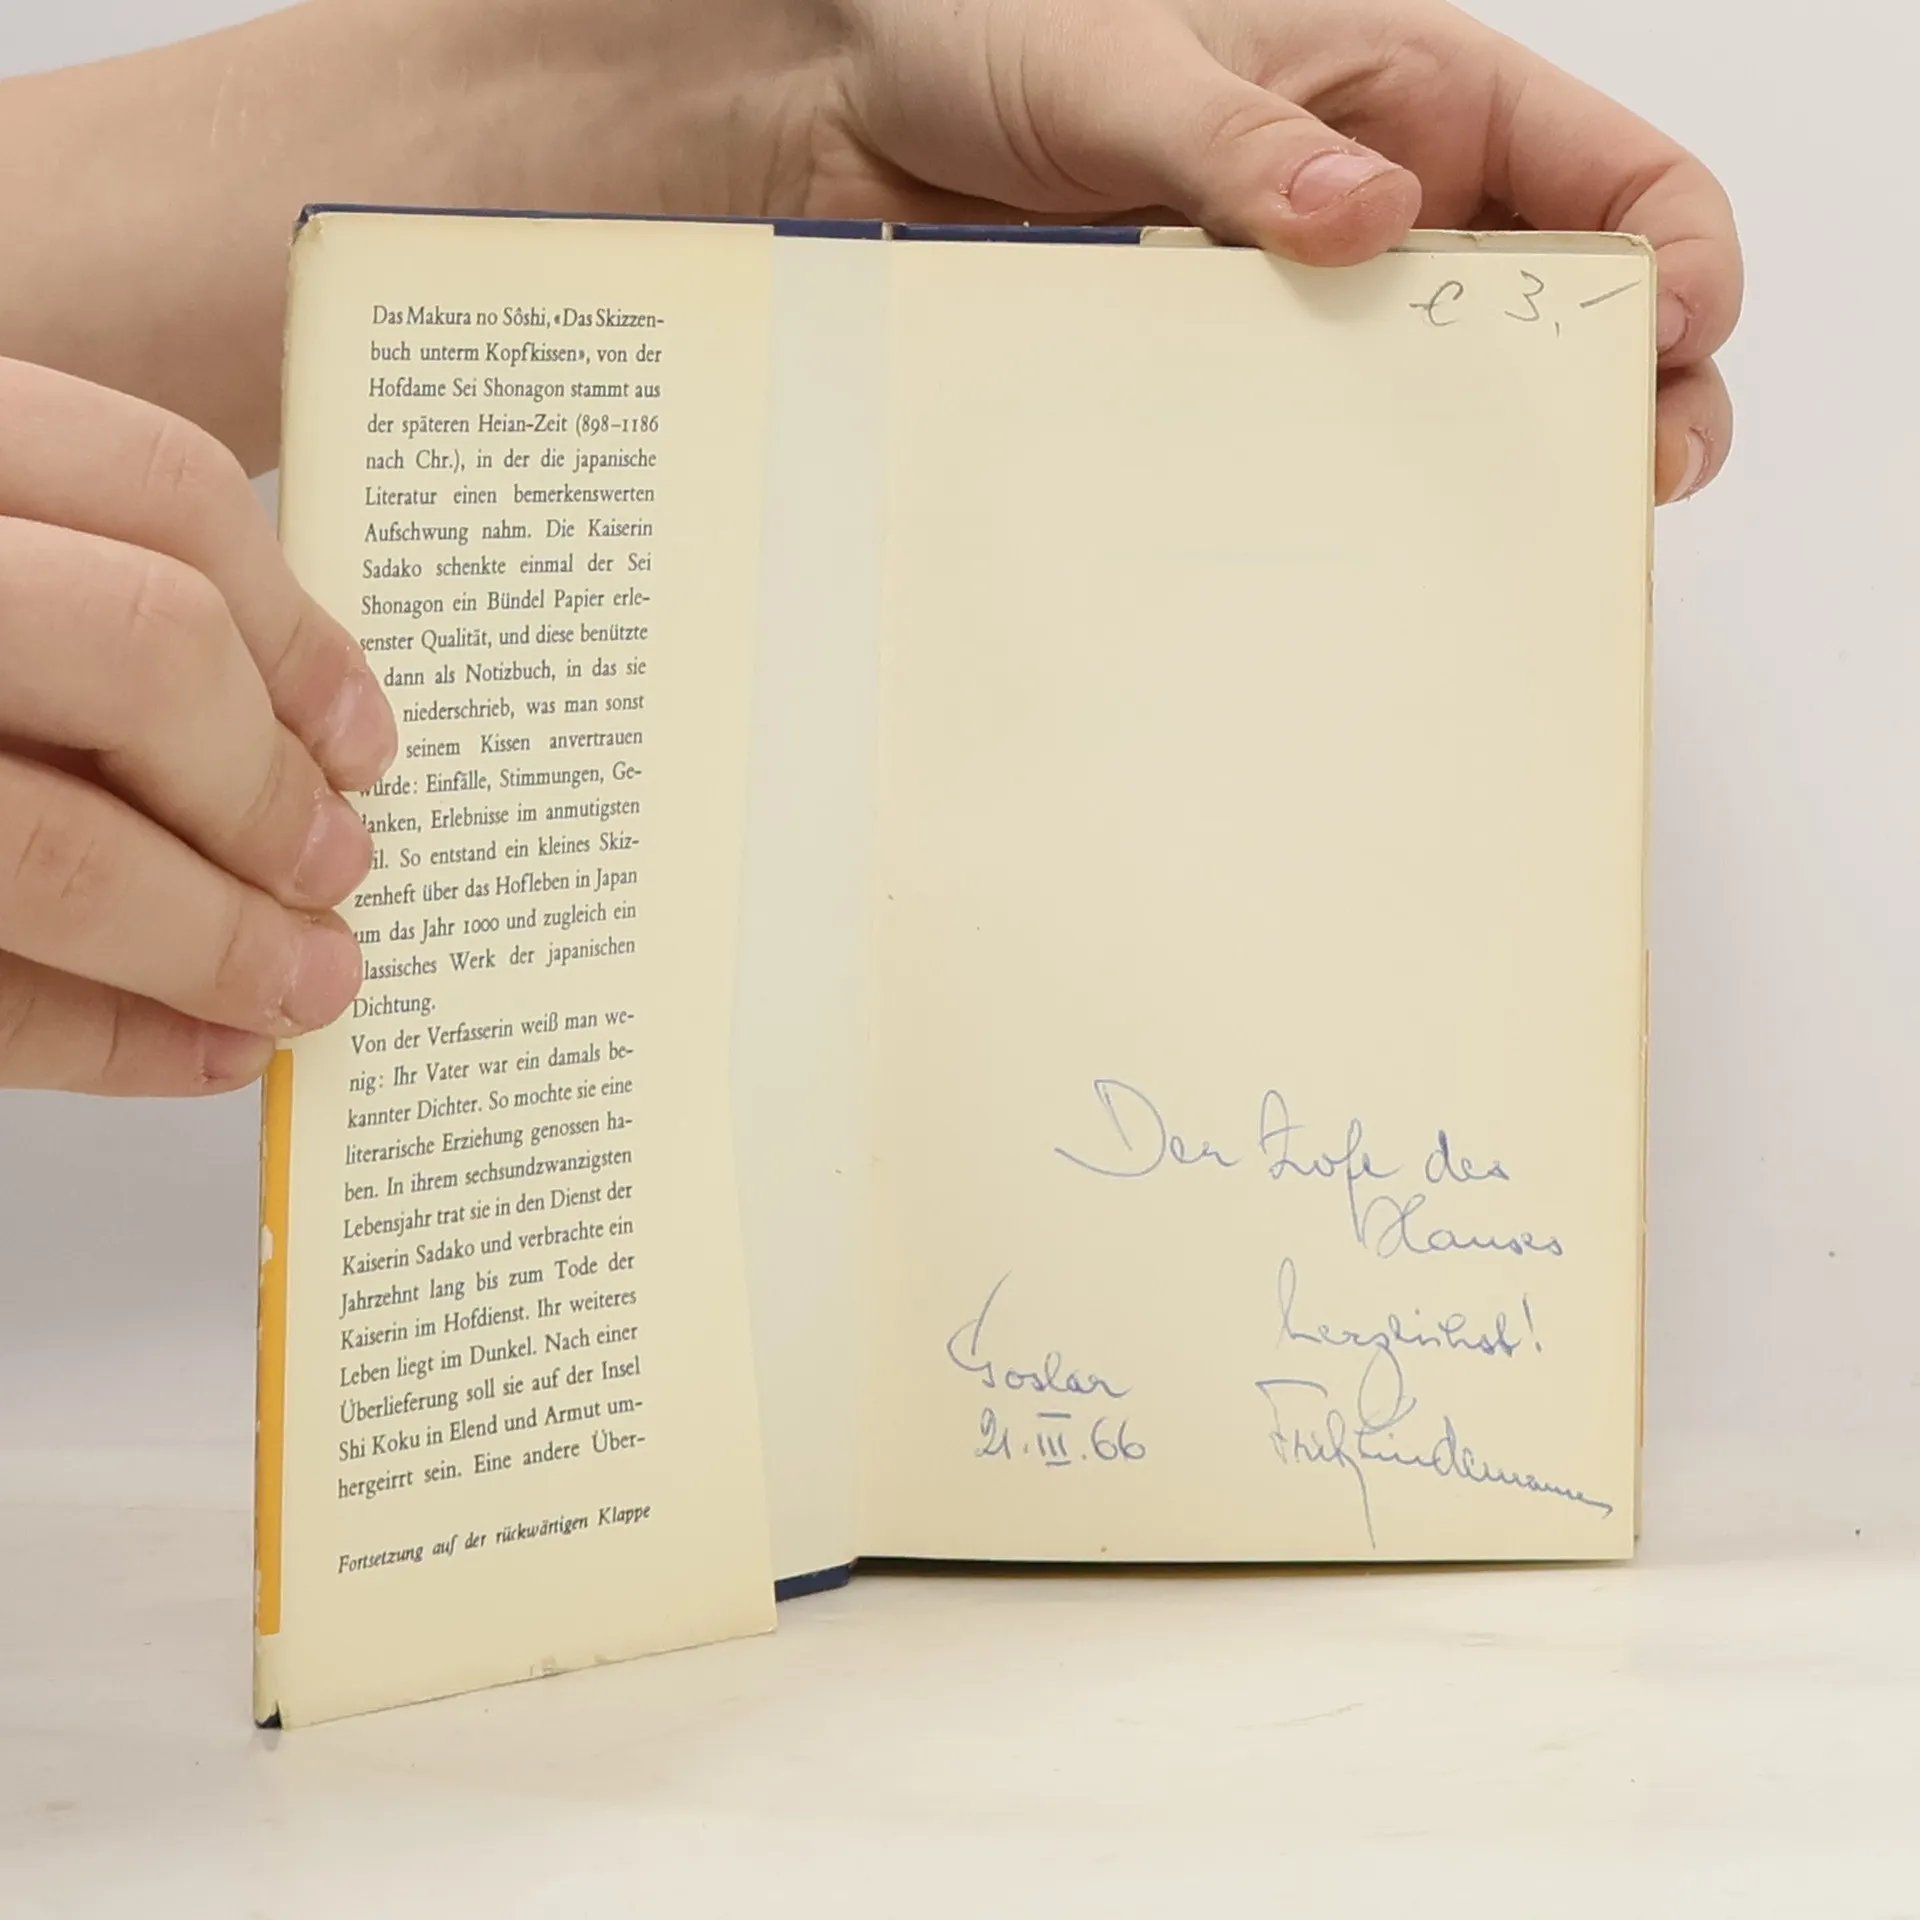 Das Makura no Sôshi, «Das Skizzen-
buch unterm Kopfkissen», von der
Hofdame Sei Shonagon stammt aus
der späteren Heian-Zeit (898–1186
nach Chr.), in der die japanische
Literatur einen bemerkenswerten
Aufschwung nahm. Die Kaiserin
Sadako schenkte einmal der Sei
Shonagon ein Bündel Papier erle-
senster Qualität, und diese benützte
dann als Notizbuch, in das sie
niederschrieb, was man sonst
seinem Kissen anvertrauen
würde: Einfälle, Stimmungen, Ge-
danken, Erlebnisse im anmutigsten
il. So entstand ein kleines Skiz-
zenheft über das Hofleben in Japan
um das Jahr 1000 und zugleich ein
lassisches Werk der japanischen
Dichtung.
Von der Verfasserin weiß man we-
nig: Ihr Vater war ein damals be-
kannter Dichter. So mochte sie eine
literarische Erziehung genossen ha-
ben. In ihrem sechsundzwanzigsten
Lebensjahr trat sie in den Dienst der
Kaiserin Sadako und verbrachte ein
Jahrzehnt lang bis zum Tode der
Kaiserin im Hofdienst. Ihr weiteres
Leben liegt im Dunkel. Nach einer
Überlieferung soll sie auf der Insel
Shi Koku in Elend und Armut um-
hergeirrt sein. Eine andere Über-
Fortsetzung auf der rückwärtigen Klappe
€ 3,–
Der Zofe des
Hauses
herzlichst!
Goslar
21.III.66
Fritz Lindemann